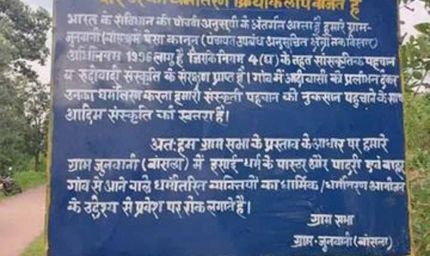 धर्मांतरण क्रियाकलाप वर्जित है
भारत के संविधान की पांचवी अनुसूची के अंतर्गत आता है हमारे ग्राम-
जुनवानी (बांसला) में पेसा कानून (पंचायत उपबंध अनुसूचित क्षेत्रों तक विस्तार)
अधिनियम 1996 लागू है जिसके नियम 4 (घ) के तहत सांस्कृतिक पहचान
व रुढ़ीवादी संस्कृति के संरक्षण प्राप्त है। गांव में आदीवासी को प्रलोभन देकर
उनका धर्मांतरण करना हमारी संस्कृती पहचान को नुकसान पहुंचाने के साथ
आदिम संस्कृति को खतरा है।
अतः हम ग्राम सभा के प्रस्ताव के आधार पर हमारे
ग्राम जुनवानी (बांसला) में इसाई धर्म के पास्टर और पादरी एवं बाहर
गांव से आने वाले धर्मांतरित व्यक्तियों का धार्मिक/धर्मांतरण आयोजन
के उद्देश्य से प्रवेश पर रोक लगाते है।
ग्राम सभा
ग्राम-जुनवानी (बांसला)